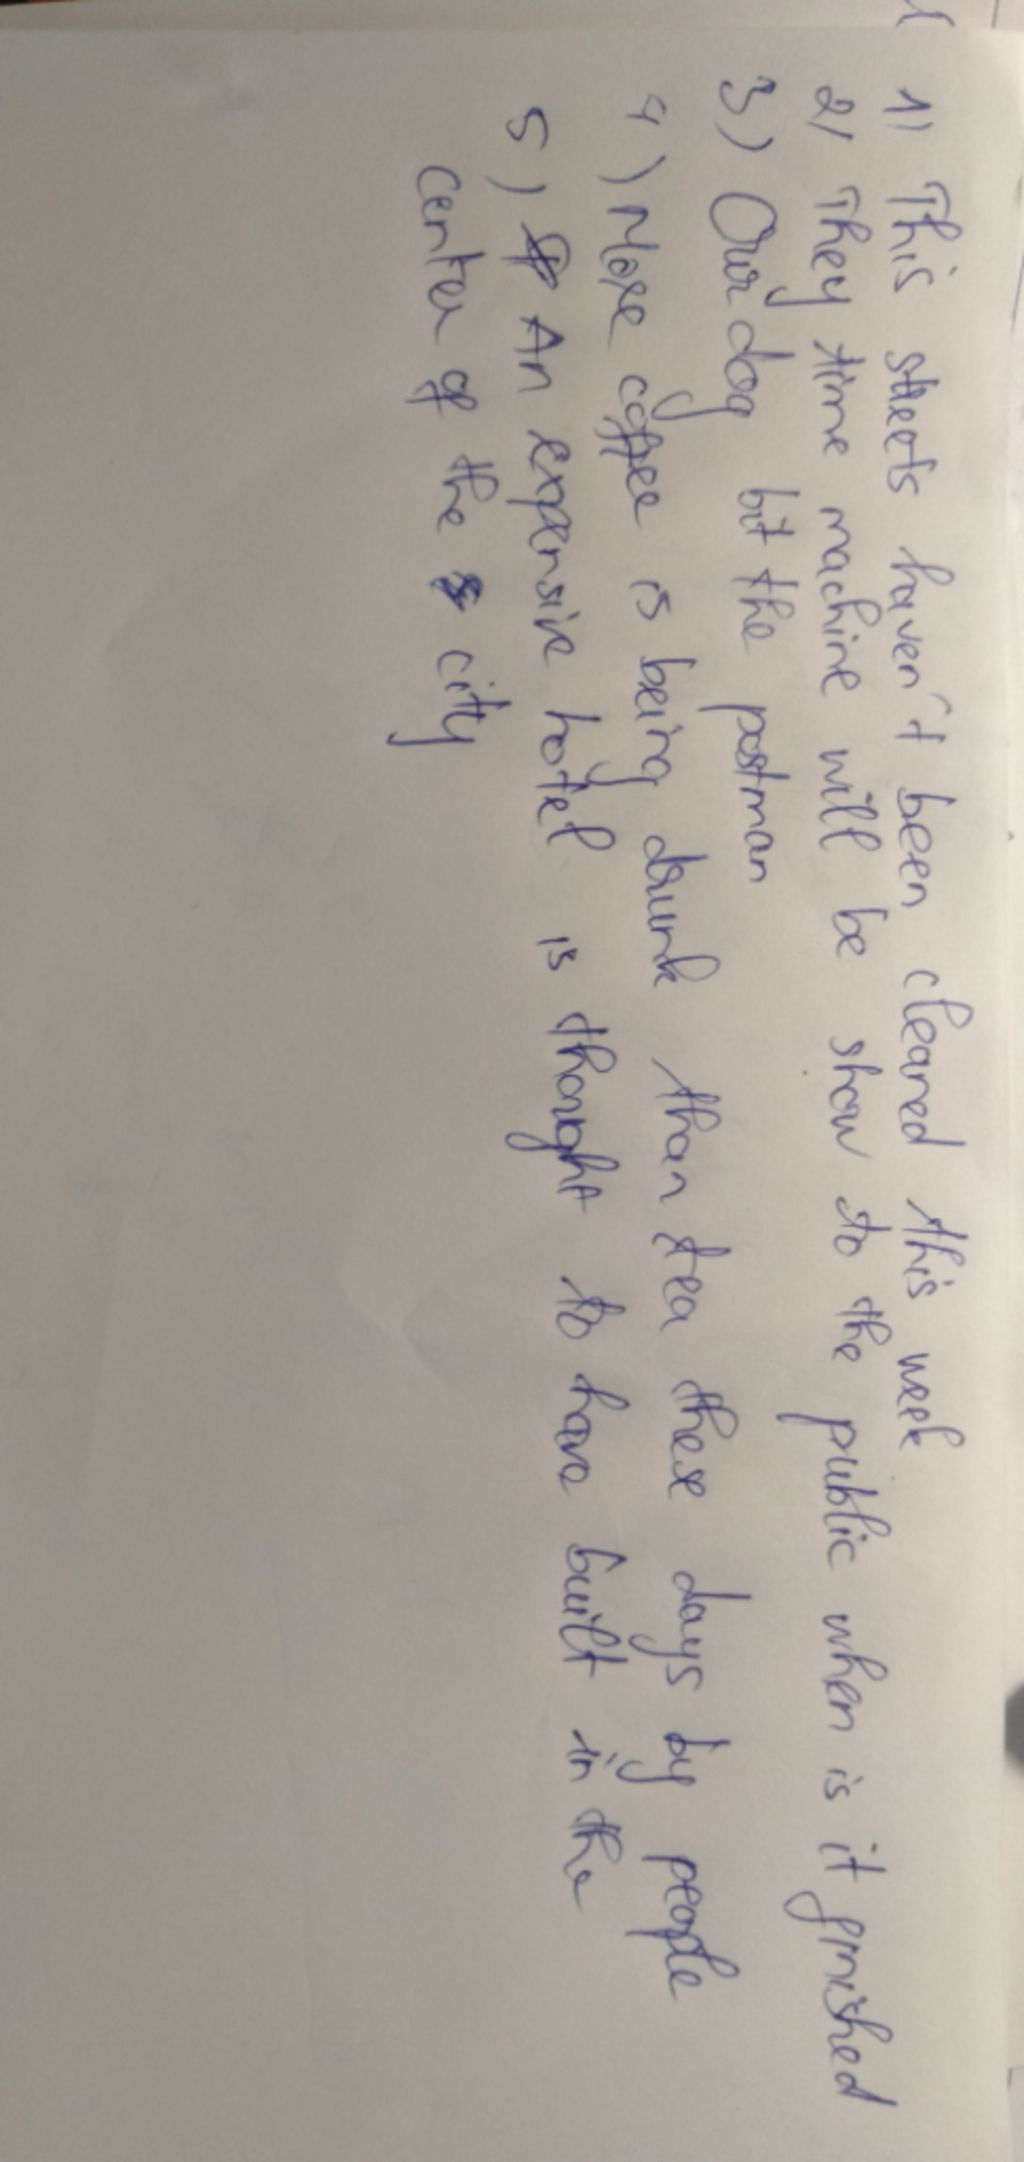 1) This streets haven't been cleaned this week
2) They time machine will be show to the public when is it finished
3) Our dog bit the postman
4) More coffee is being drunk than tea these days by people
5) An expensive hotel is thought to have built in the
center of the city